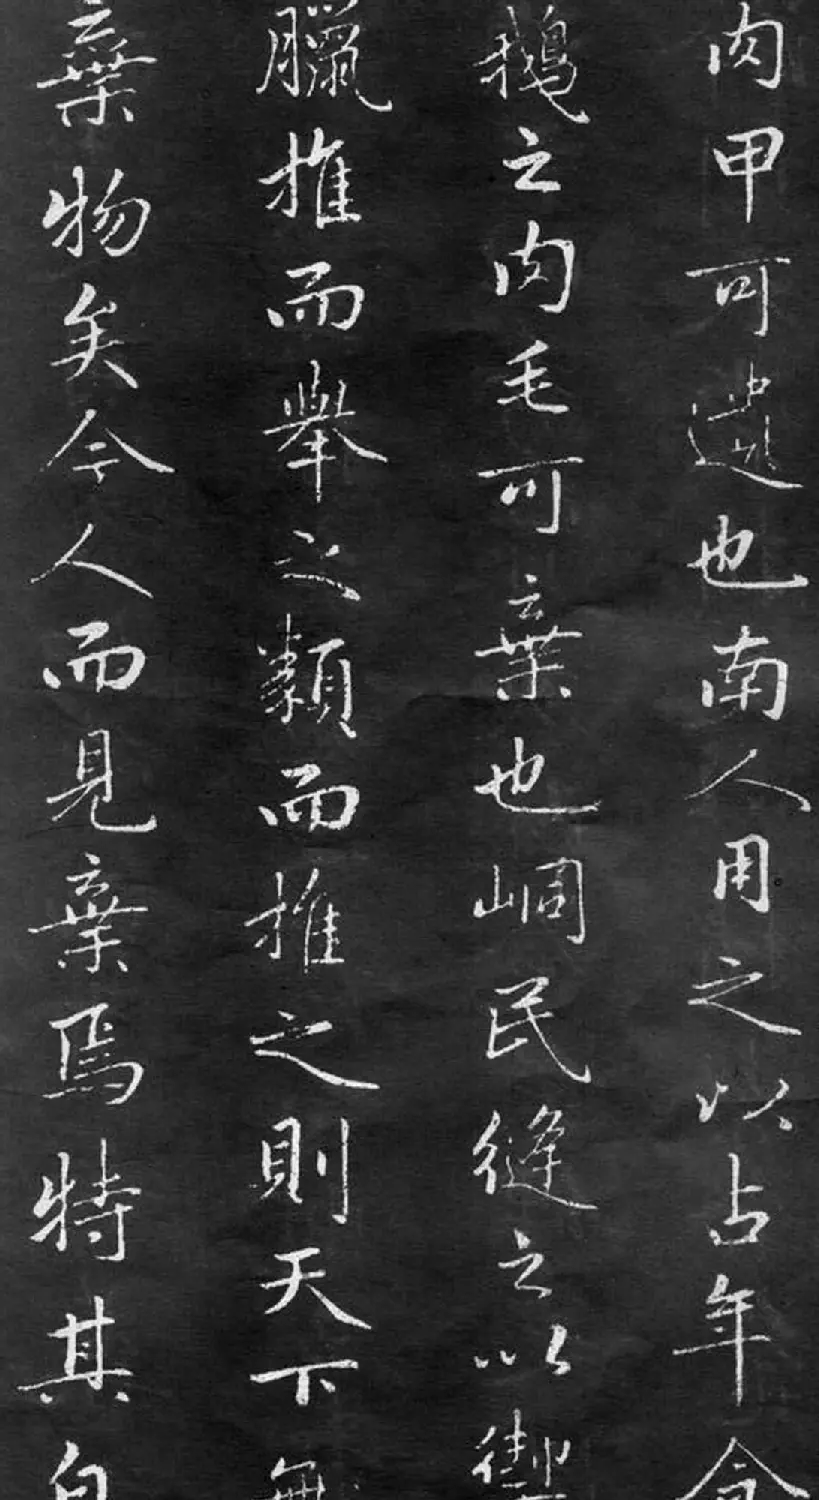 肉甲可遺也南人用之以占年食
鵝之肉毛可棄也峒民縫之以禦
臘推而舉之類而推之則天下無
棄物矣今人而見棄焉特其自